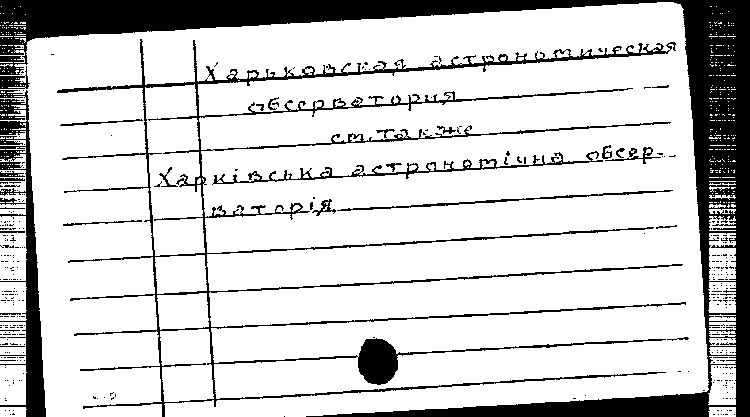 Харьковская астрономическая
обсерватория
см. также
Харківська астрономічна обсер-
ваторія